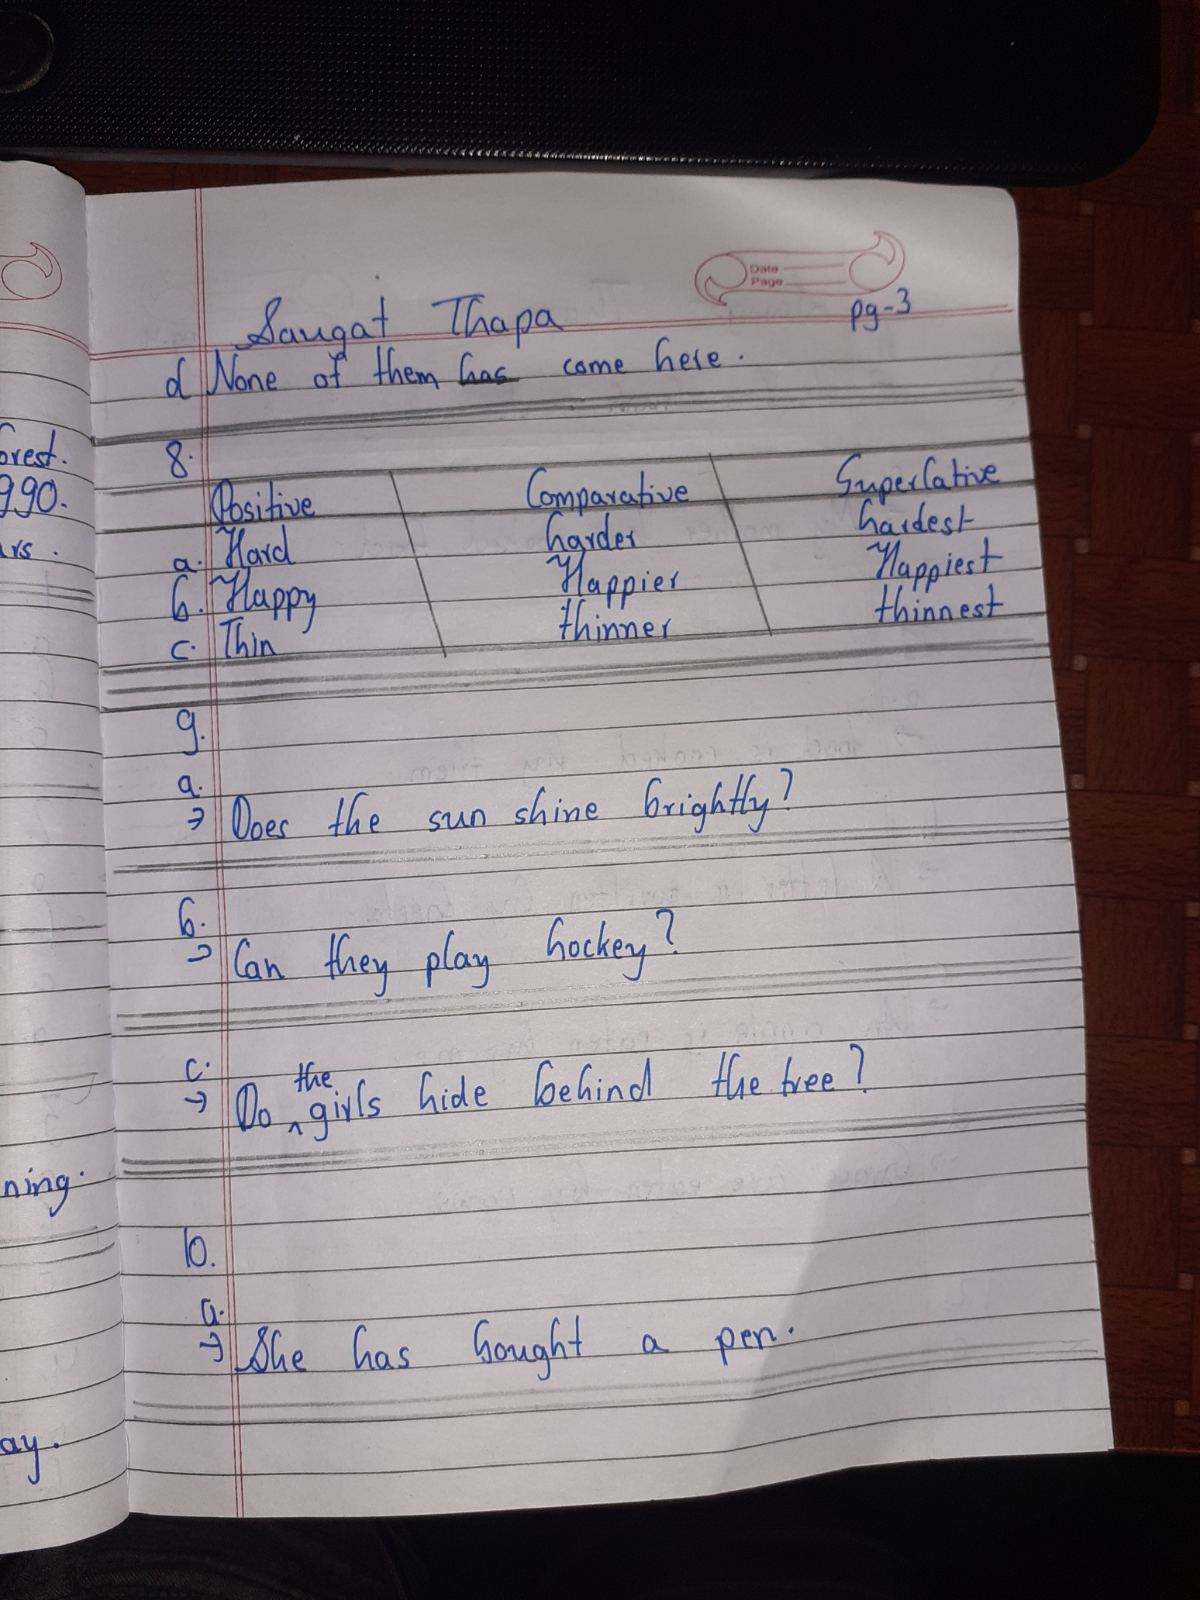 Date
Page
pg-3
Saugat Thapa
d None of them has come here.
8.
Positive Comparative Superlative
a. Hard harder hardest
b. Happy Happier Happiest
c. Thin thinner thinnest
9.
a.
→ Does the sun shine brightly?
b.
→ Can they play hockey?
c.
→ Do the girls hide behind the tree?
10.
a.
→ She has bought a pen.
orest.
990.
ning.
ay.